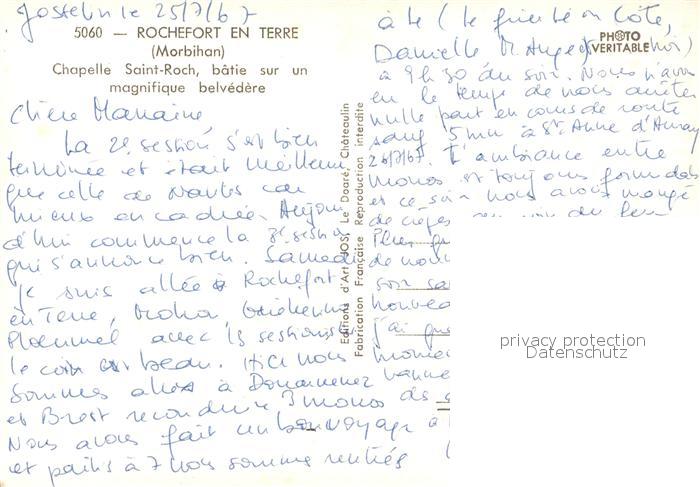 Josselin le 25/7/67
5060 — ROCHEFORT EN TERRE
(Morbihan)
Chapelle Saint-Roch, bâtie sur un
magnifique belvédère
PHOTO
VERITABLE
Chère Marraine
La 2e session s'est bien
terminée et était meilleure
que celle de Nantes car
mieux encadrée. Aujour
d'hui commence la 3e session
qui s'annonce bien. Samedi
je suis allée à Rochefort
en Terre,
Ploermel avec 13 sessionistes
le coin est beau. Hier nous
sommes allés à Douarnenez
et Brest reconduire 3 monos
Nous avons fait un bon voyage
et partis à 7 nous sommes rentrés
Editions d'Art JOS, Le Doaré, Châteaulin
Fabrication Française Reproduction interdite
Danielle
à 9h30 du soir. Nous n'avons
eu le temps de nous arrêter
nulle part en cours de route
sauf 5 mn à Ste Anne d'Auray
26/7/67. L'ambiance entre
monos est toujours formidable
et ce soir nous avons mangé
de crêpes
Plus
de nou
son sa
nouvea
j'ai
monie
privacy protection
Datenschutz